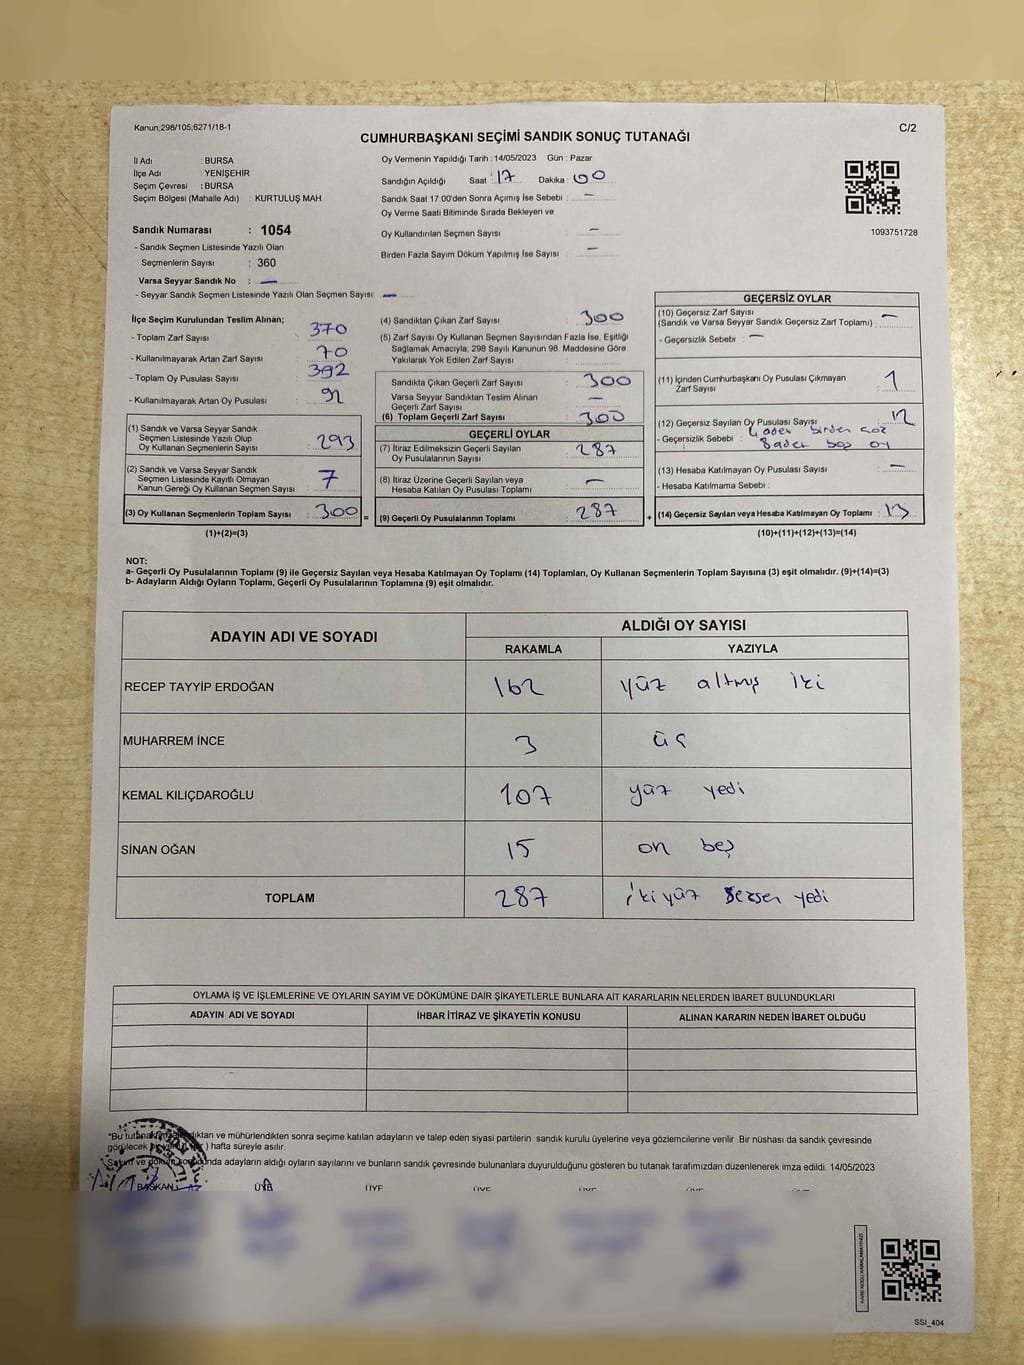 Kanun;298/105;6271/18-1
C/2
CUMHURBAŞKANI SEÇİMİ SANDIK SONUÇ TUTANAĞI
İl Adı : BURSA
İlçe Adı : YENİŞEHİR
Seçim Çevresi : BURSA
Seçim Bölgesi (Mahalle Adı) : KURTULUŞ MAH.
Sandık Numarası : 1054
- Sandık Seçmen Listesinde Yazılı Olan
Seçmenlerin Sayısı : 360
Varsa Seyyar Sandık No : —
- Seyyar Sandık Seçmen Listesinde Yazılı Olan Seçmen Sayısı: —
Oy Vermenin Yapıldığı Tarih : 14/05/2023 Gün : Pazar
Sandığın Açıldığı Saat : 17 Dakika : 00
Sandık Saat 17.00'den Sonra Açımış İse Sebebi : —
Oy Verme Saati Bitiminde Sırada Bekleyen ve
Oy Kullandırılan Seçmen Sayısı —
Birden Fazla Sayım Döküm Yapılmış İse Sayısı —
1093751728
İlçe Seçim Kurulundan Teslim Alınan;
- Toplam Zarf Sayısı 370
- Kullanılmayarak Artan Zarf Sayısı 70
- Toplam Oy Pusulası Sayısı 392
- Kullanılmayarak Artan Oy Pusulası 92
(1) Sandık ve Varsa Seyyar Sandık
Seçmen Listesinde Yazılı Olup
Oy Kullanan Seçmenlerin Sayısı : 293
(2) Sandık ve Varsa Seyyar Sandık
Seçmen Listesinde Kayıtlı Olmayan
Kanun Gereği Oy Kullanan Seçmen Sayısı : 7
(3) Oy Kullanan Seçmenlerin Toplam Sayısı : 300 =
(1)+(2)=(3)
(4) Sandıktan Çıkan Zarf Sayısı : 300
(5) Zarf Sayısı Oy Kullanan Seçmen Sayısından Fazla İse, Eşitliği
Sağlamak Amacıyla, 298 Sayılı Kanunun 98. Maddesine Göre
Yakılarak Yok Edilen Zarf Sayısı
Sandıkta Çıkan Geçerli Zarf Sayısı : 300
Varsa Seyyar Sandıktan Teslim Alınan
Geçerli Zarf Sayısı —
(6) Toplam Geçerli Zarf Sayısı : 300
GEÇERLİ OYLAR
(7) İtiraz Edilmeksizin Geçerli Sayılan
Oy Pusulalarının Sayısı : 287
(8) İtiraz Üzerine Geçerli Sayılan veya
Hesaba Katılan Oy Pusulası Toplamı : —
(9) Geçerli Oy Pusulalarının Toplamı : 287 +
GEÇERSİZ OYLAR
(10) Geçersiz Zarf Sayısı
(Sandık ve Varsa Seyyar Sandık Geçersiz Zarf Toplamı) : —
- Geçersizlik Sebebi : —
(11) İçinden Cumhurbaşkanı Oy Pusulası Çıkmayan
Zarf Sayısı : 1
(12) Geçersiz Sayılan Oy Pusulası Sayısı : 12
- Geçersizlik Sebebi : 4 adet birden çok
8 adet boş oy
(13) Hesaba Katılmayan Oy Pusulası Sayısı : —
- Hesaba Katılmama Sebebi :
(14) Geçersiz Sayılan veya Hesaba Katılmayan Oy Toplamı : 13
(10)+(11)+(12)+(13)=(14)
NOT:
a- Geçerli Oy Pusulalarının Toplamı (9) ile Geçersiz Sayılan veya Hesaba Katılmayan Oy Toplamı (14) Toplamları, Oy Kullanan Seçmenlerin Toplam Sayısına (3) eşit olmalıdır. (9)+(14)=(3)
b- Adayların Aldığı Oyların Toplamı, Geçerli Oy Pusulalarının Toplamına (9) eşit olmalıdır.
ADAYIN ADI VE SOYADI
ALDIĞI OY SAYISI
RAKAMLA YAZIYLA
RECEP TAYYİP ERDOĞAN 162 yüz altmış iki
MUHARREM İNCE 3 üç
KEMAL KILIÇDAROĞLU 107 yüz yedi
SİNAN OĞAN 15 on beş
TOPLAM 287 ikiyüz seksen yedi
OYLAMA İŞ VE İŞLEMLERİNE VE OYLARIN SAYIM VE DÖKÜMÜNE DAİR ŞİKAYETLERLE BUNLARA AİT KARARLARIN NELERDEN İBARET BULUNDUKLARI
ADAYIN ADI VE SOYADI İHBAR İTİRAZ VE ŞİKAYETİN KONUSU ALINAN KARARIN NEDEN İBARET OLDUĞU
"Bu ve mühürlendikten sonra seçime katılan adayların ve talep eden siyasi partilerin sandık kurulu üyelerine veya gözlemcilerine verilir. Bir nüshası da sandık çevresinde
görülecek ) hafta süreyle asılır.
Sayım ve döküm adayların aldığı oyların sayılarını ve bunların sandık çevresinde bulunanlara duyurulduğunu gösteren bu tutanak tarafımızdan düzenlenerek imza edildi. 14/05/2023
BAŞKAN ÜYE ÜYE ÜYE ÜYE
SSI_404